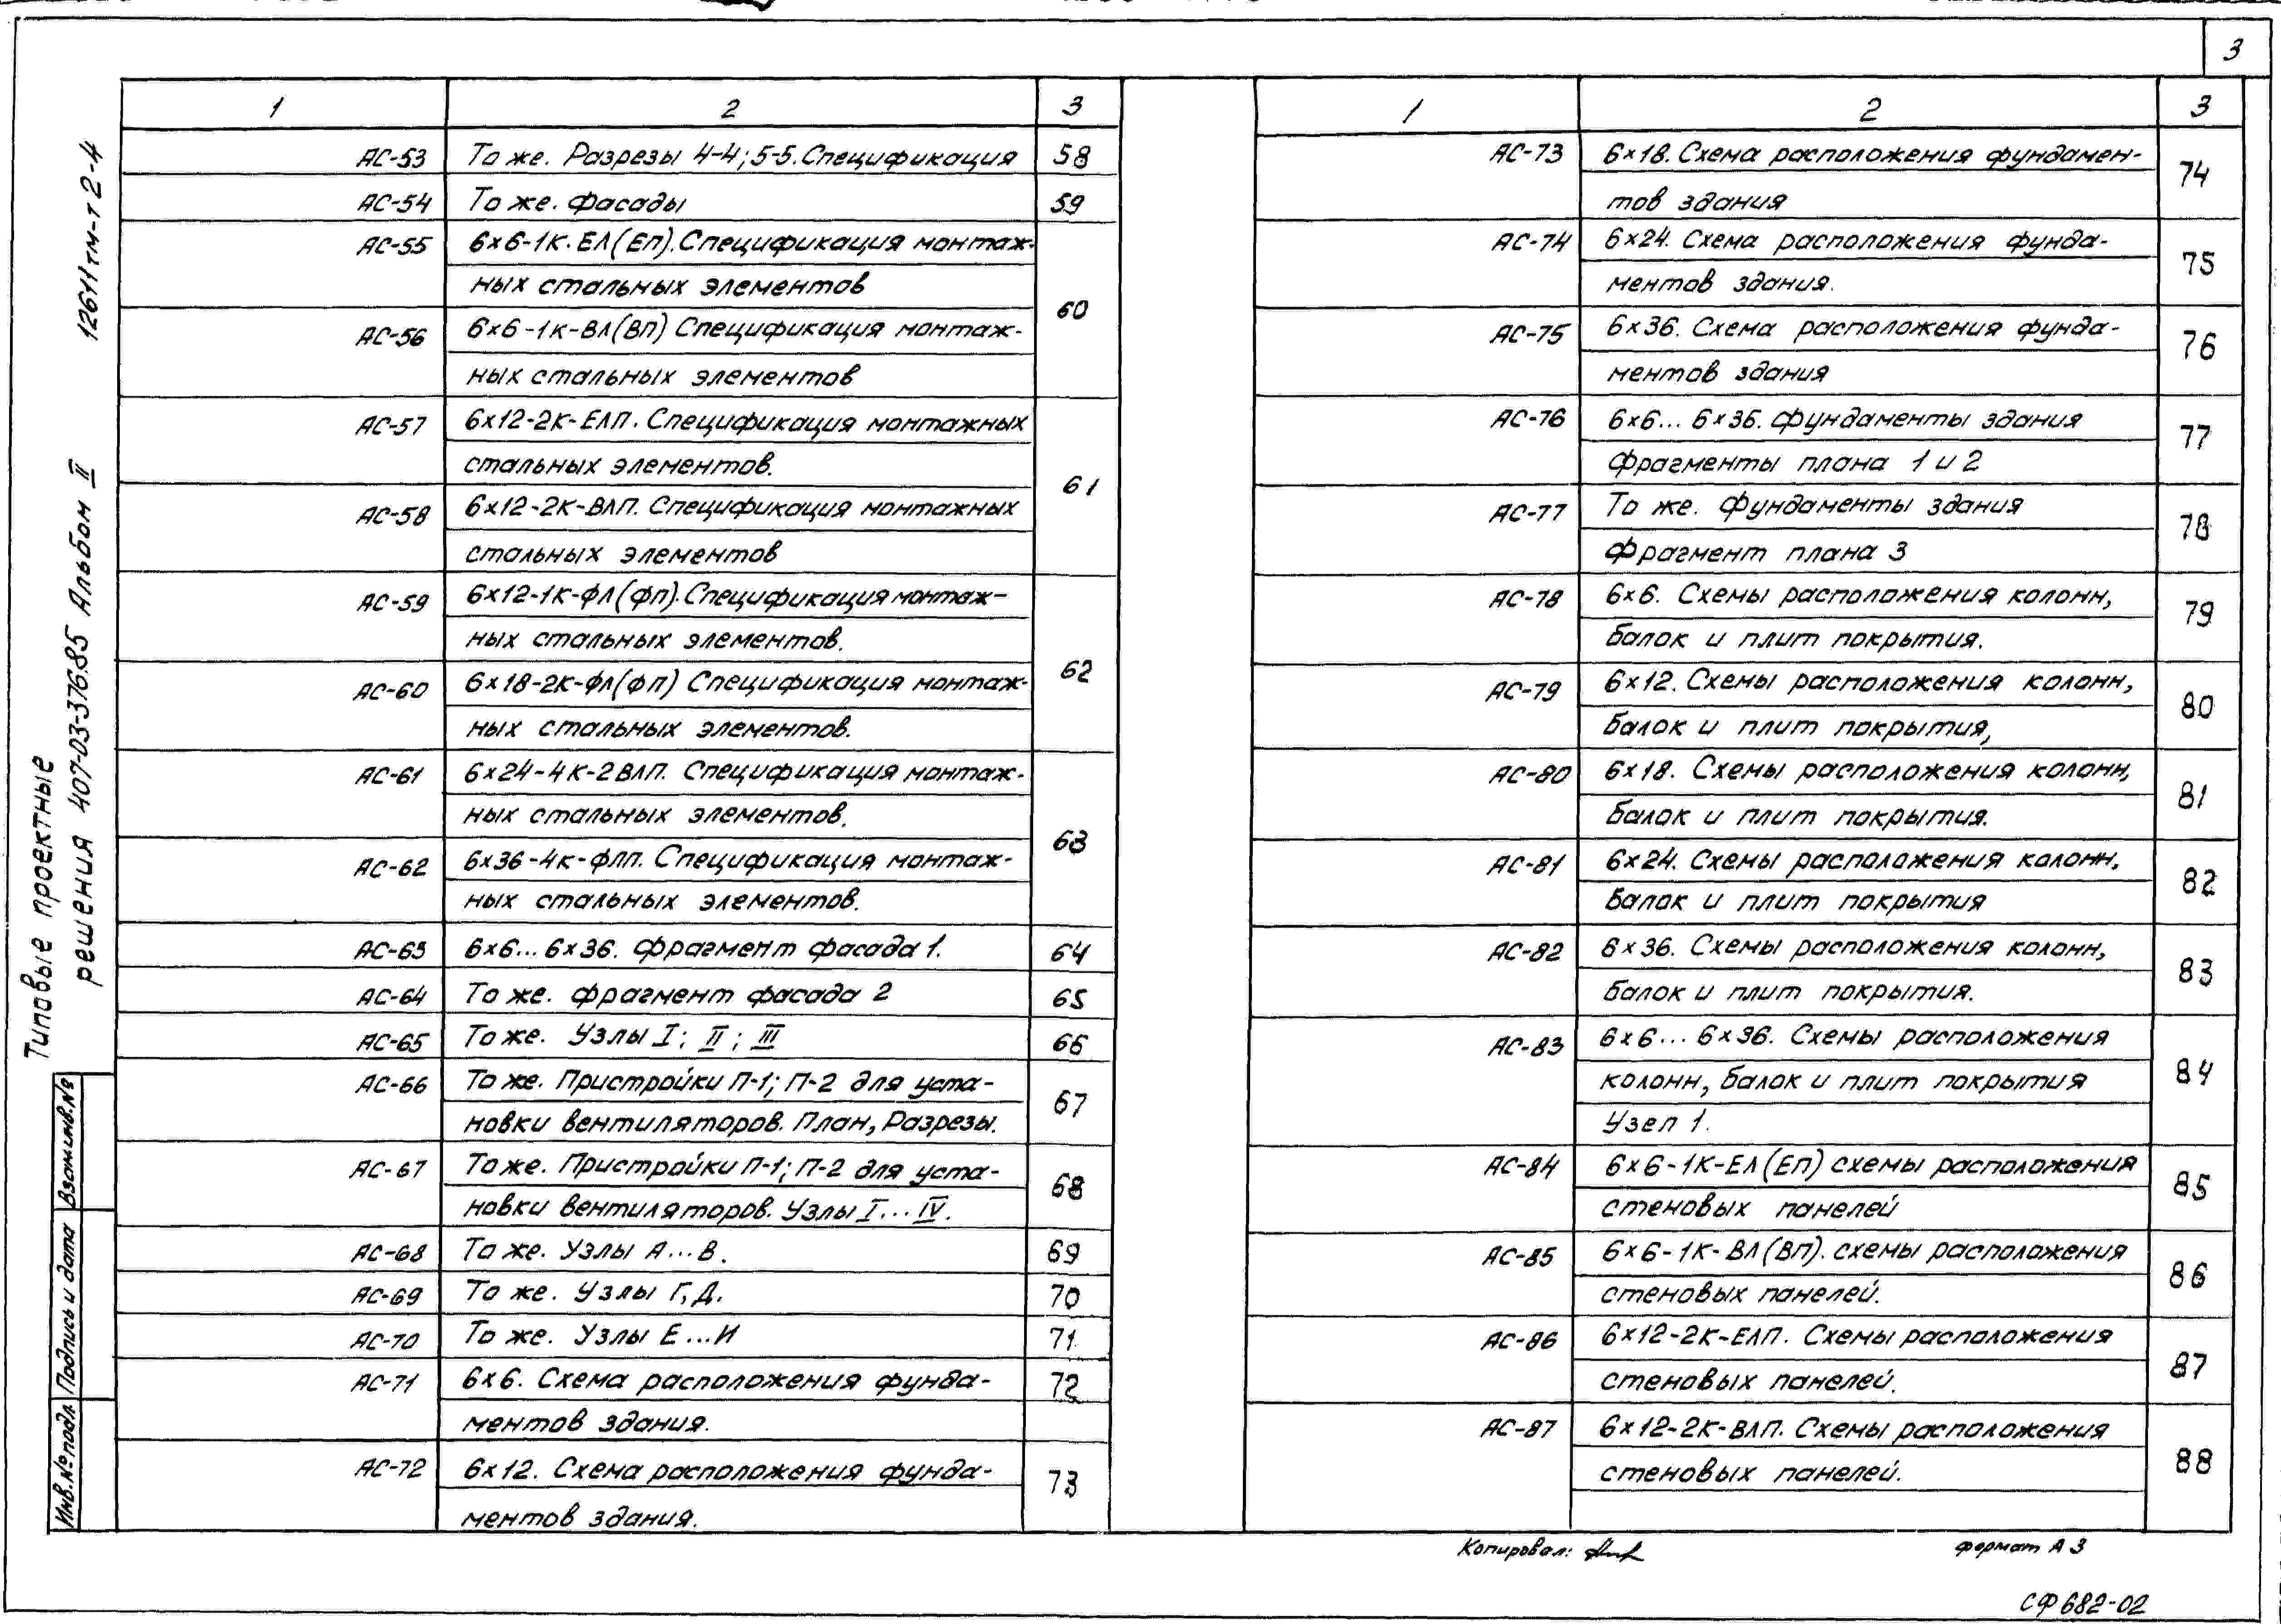 3
12611тм-т2-4
Типовые проектные
решения 407-03-376.85 Альбом II
Взам.инв.№
Подпись и дата
Инв.№ подл.
1 2 3
АС-53 То же. Разрезы 4-4; 5-5. Спецификация 58
АС-54 То же. Фасады 59
АС-55 6×6-1К-ЕЛ(ЕП). Спецификация монтаж-
ных стальных элементов
60
АС-56 6×6-1К-ВЛ(ВП) Спецификация монтаж-
ных стальных элементов
АС-57 6×12-2К-ЕЛП. Спецификация монтажных
стальных элементов.
61
АС-58 6×12-2К-ВЛП. Спецификация монтажных
стальных элементов
АС-59 6×12-1К-ФЛ(ФП). Спецификация монтаж-
ных стальных элементов.
62
АС-60 6×18-2К-ФЛ(ФП) Спецификация монтаж-
ных стальных элементов.
АС-61 6×24-4К-2ВЛП. Спецификация монтаж-
ных стальных элементов.
63
АС-62 6×36-4К-ФЛП. Спецификация монтаж-
ных стальных элементов.
АС-63 6×6... 6×36. Фрагмент фасада 1. 64
АС-64 То же. Фрагмент фасада 2 65
АС-65 То же. Узлы I; II; III 66
АС-66 То же. Пристройки П-1; П-2 для уста-
новки вентиляторов. План, Разрезы. 67
АС-67 То же. Пристройки П-1; П-2 для уста-
новки вентиляторов. Узлы I... IV. 68
АС-68 То же. Узлы А...В. 69
АС-69 То же. Узлы Г, Д. 70
АС-70 То же. Узлы Е...И 71
АС-71 6×6. Схема расположения фунда- 72
ментов здания.
АС-72 6×12. Схема расположения фунда- 73
ментов здания.
1 2 3
АС-73 6×18. Схема расположения фундамен- 74
тов здания
АС-74 6×24. Схема расположения фунда- 75
ментов здания.
АС-75 6×36. Схема расположения фунда- 76
ментов здания
АС-76 6×6... 6×36. Фундаменты здания 77
Фрагменты плана 1 и 2
АС-77 То же. Фундаменты здания 78
Фрагмент плана 3
АС-78 6×6. Схемы расположения колонн, 79
балок и плит покрытия.
АС-79 6×12. Схемы расположения колонн, 80
балок и плит покрытия,
АС-80 6×18. Схемы расположения колонн, 81
балок и плит покрытия.
АС-81 6×24. Схемы расположения колонн, 82
балок и плит покрытия
АС-82 6×36. Схемы расположения колонн, 83
балок и плит покрытия.
АС-83 6×6... 6×36. Схемы расположения
колонн, балок и плит покрытия 84
Узел 1.
АС-84 6×6-1К-ЕЛ(ЕП) схемы расположения 85
стеновых панелей
АС-85 6×6-1К-ВЛ(ВП). схемы расположения 86
стеновых панелей.
АС-86 6×12-2К-ЕЛП. Схемы расположения 87
стеновых панелей.
АС-87 6×12-2К-ВЛП. Схемы расположения 88
стеновых панелей.
Копировал:
формат А3
СФ 682-02